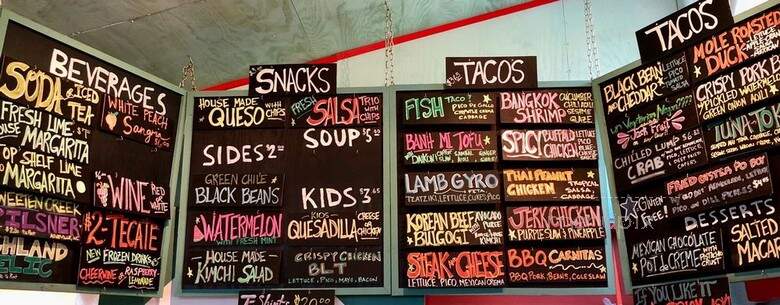 BEVERAGES
SODA ICED TEA
FRESH LIME
HOUSE MARGARITA
OF SHELF LIME
MARGARITA
WHITE PEACH
Sangria
WINE RED or WHITE
PILSNER
HIGHLAND
#2-TECATE
NEW FROZEN DRINKS
RASPBERRY
LEMONADE
SNACKS
HOUSE MADE WITH
QUESO CHIPS
FRESH SALSA TRIO WITH CHIPS
SIDES $2.50
SOUP $5
GREEN CHILE
BLACK BEANS
KIDS $3.65
WATERMELON
WITH FRESH MINT
KIDS CHEESE or
QUESADILLA CHICKEN
HOUSE MADE
KIMCHI SALAD
CRISPY CHICKEN
BLT
LETTUCE, PICO, MAYO, BACON
T-SHIRTS $20.00
TACOS
FISH TACO? PICO DE GALLO
CREMA CABBAGE
BANGKOK SHRIMP CUCUMBER CHILI AIOLI
BANH MI TOFU
SPICY BUFFALO CHICKEN
LAMB GYRO FETA
TZATZIKI, LETTUCE, CUKES, PICO
THAI PEANUT
CHICKEN TROPICAL SALSA
KOREAN BEEF
BULGOGI
AVOCADO PUREE
JERK CHICKEN
PURPLE SLAW & PINEAPPLE
STEAK & CHEESE
LETTUCE, PICO, MEXICAN CREMA
BBQ CARNITAS
BBQ PORK, BEANS, COLESLAW
TACOS
BLACK BEAN and
CHEDDAR LETTUCE PICO
MOLE ROASTED
DUCK
CRISPY PORK
PICKLED WATERMELON
GREEN ONION AIOLI
Jack Fruit
CHILLED LUMP
CRAB
TUNA
FRIED OYSTER PO BOY
PICO and DILL PICKLES
Gluten Free!
DESSERTS
MEXICAN CHOCOLATE
POT de CREME WITH PISTACHIO CRUST
SALTED
IF YOU LIKE IT